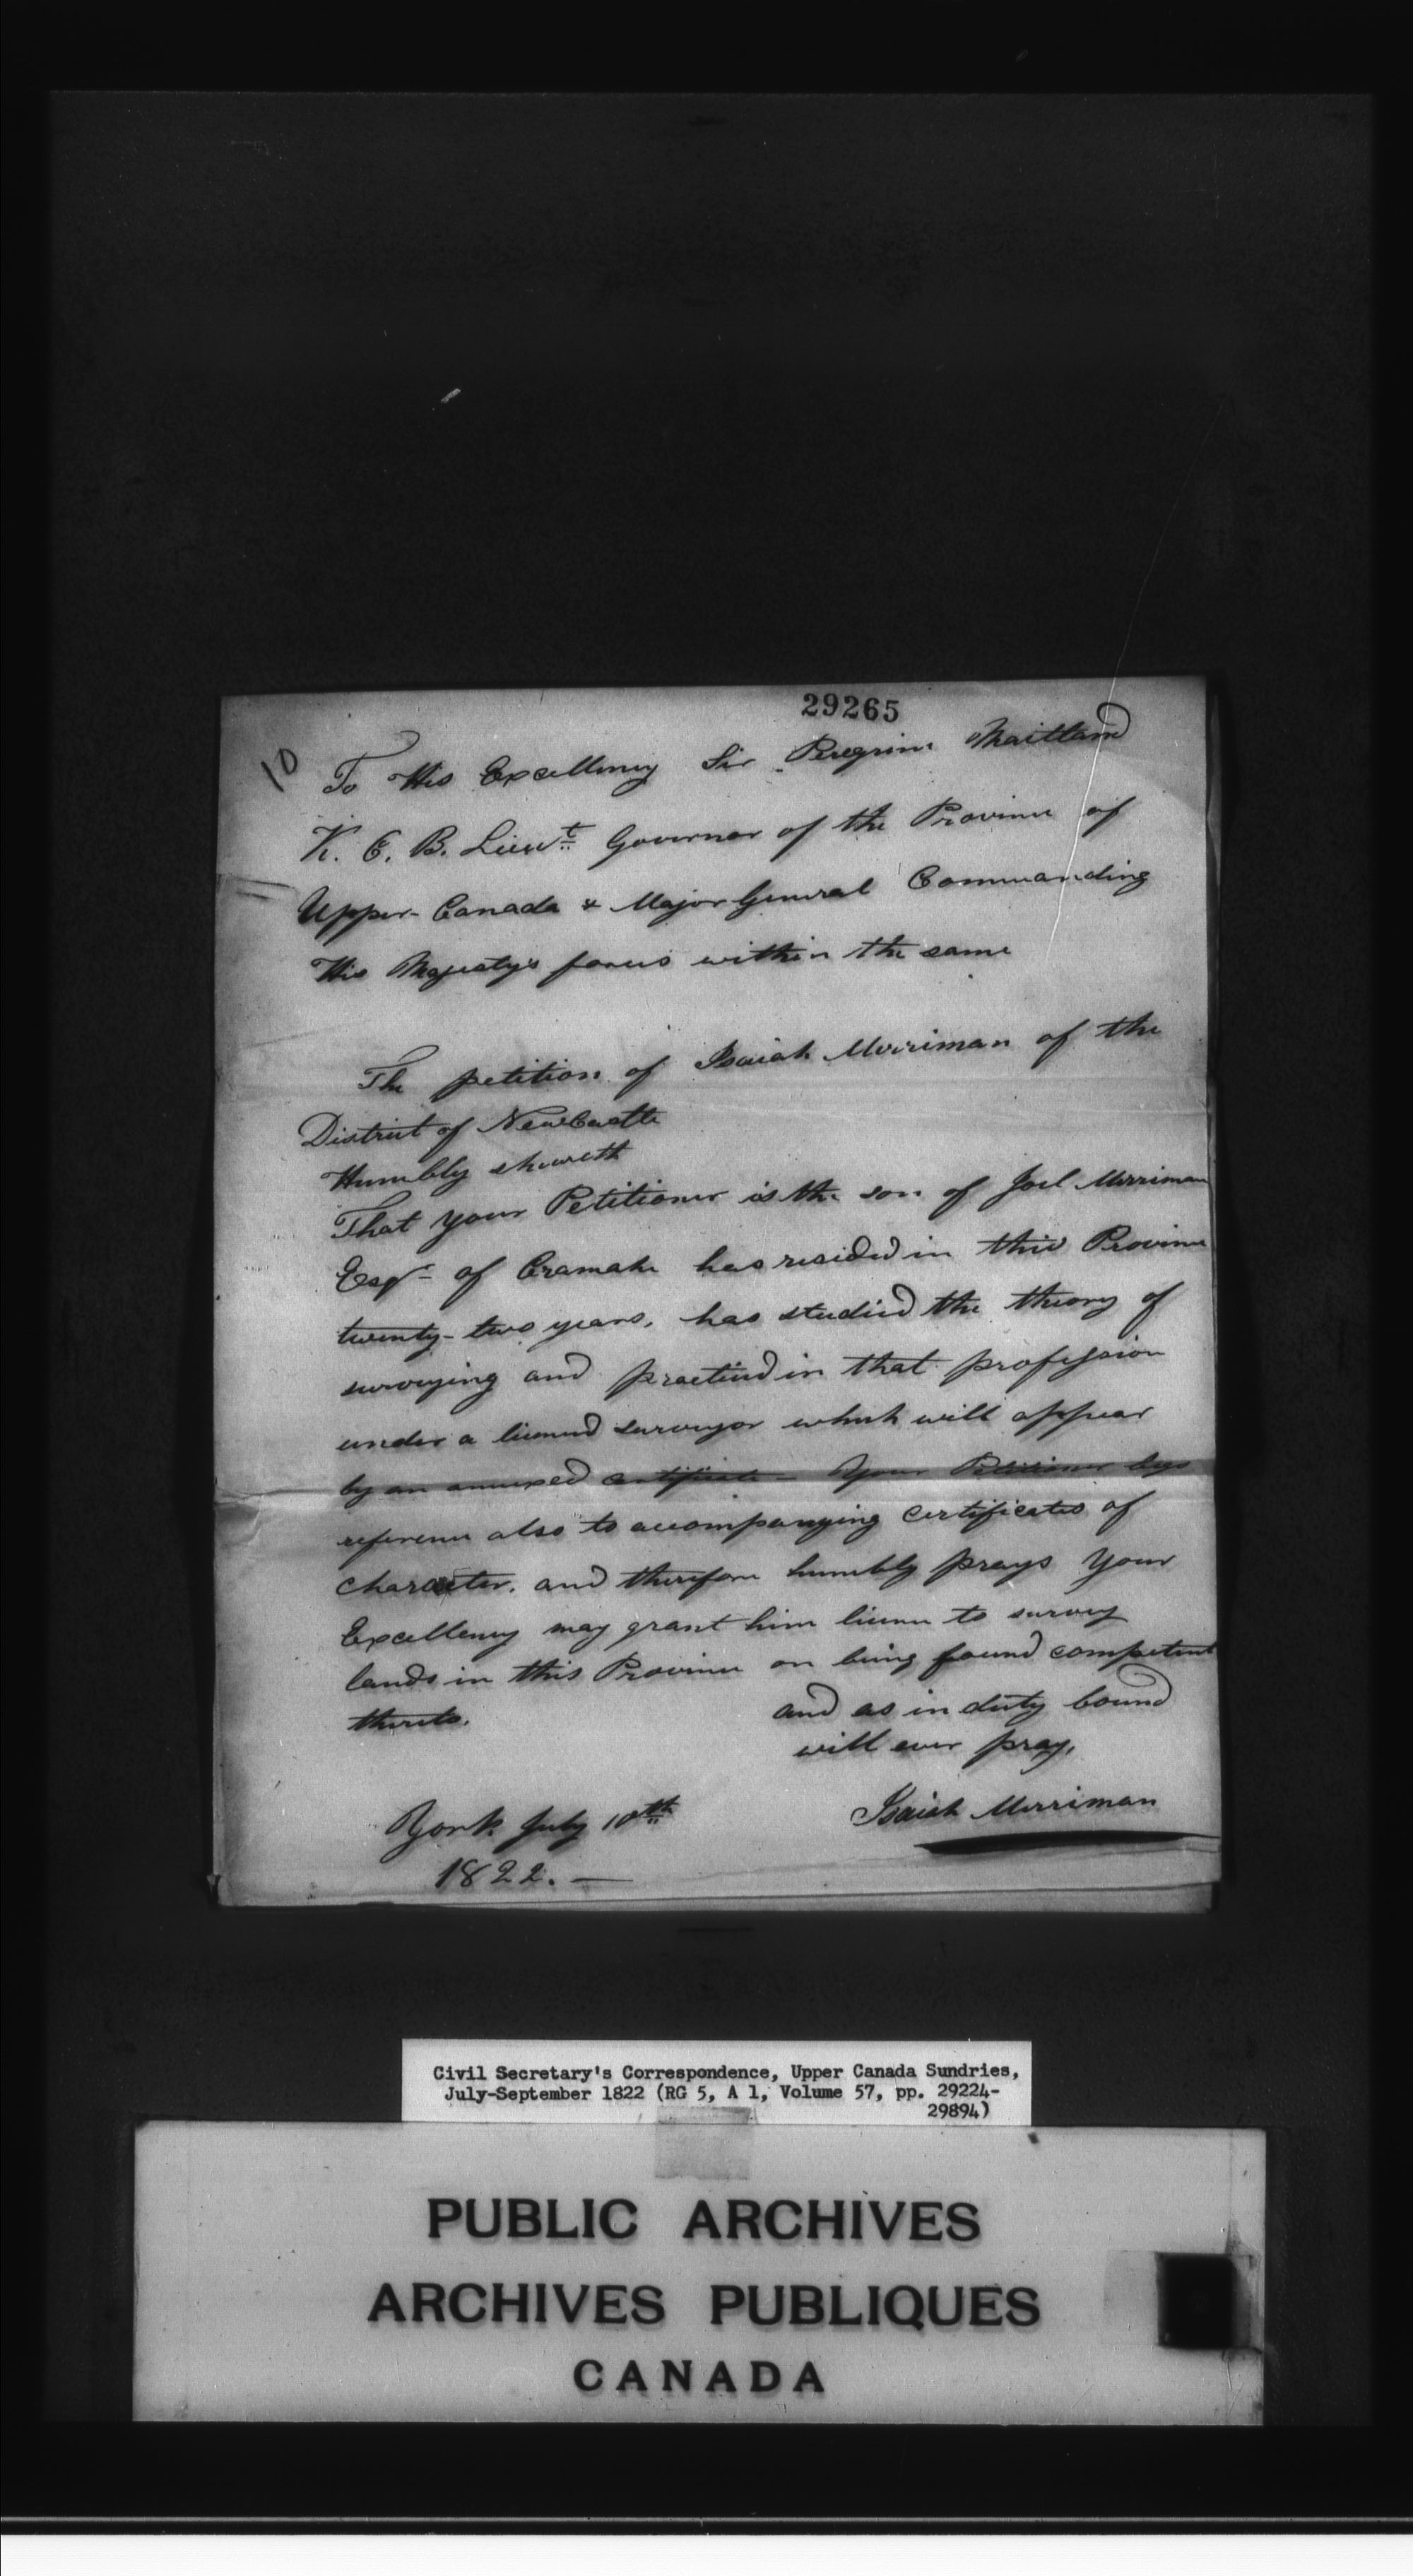 29265
10
To His Excellency Sir Peregrine Maitland
K. C. B. Lieut Governor of the Province of
Upper-Canada & Major General Commanding
His Majesty's forces within the same
The petition of Isaiah Merriman of the
District of NewCastle
Humbly sheweth
That your Petitioner is the son of Joel Merriman
Esqr of Cramahe has resided in this Province
twenty-two years, has studied the theory of
surveying and practiced in that profession
under a licensed surveyor which will appear
by an annexed certificate - Your Petitioner begs
reference also to accompanying certificates of
character, and therefore humbly prays Your
Excellency may grant him licence to survey
lands in this Province on being found competent
thereto.
and as in duty bound
will ever pray,
Isaiah Merriman
York July 10th
1822. —
Civil Secretary's Correspondence, Upper Canada Sundries,
July-September 1822 (RG 5, A 1, Volume 57, pp. 29224-
29894)
PUBLIC ARCHIVES
ARCHIVES PUBLIQUES
CANADA